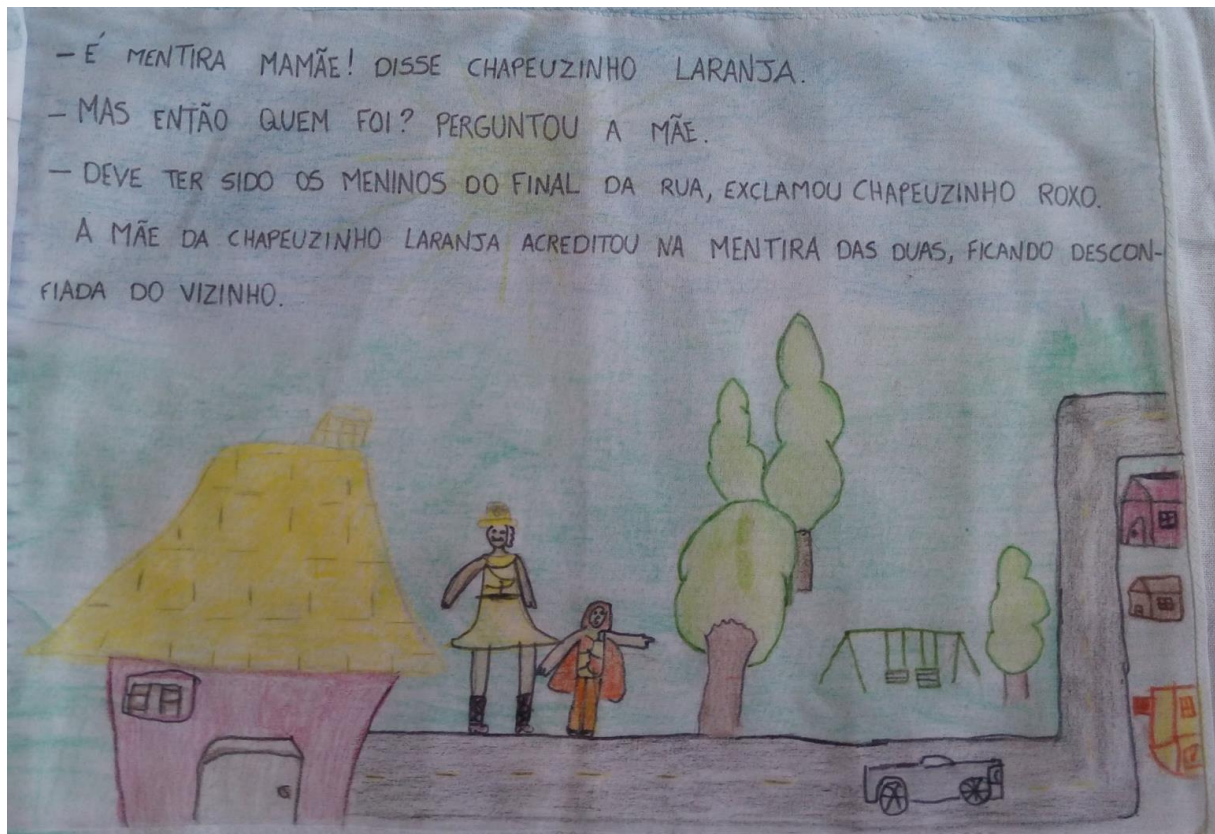 – É MENTIRA MAMÃE! DISSE CHAPEUZINHO LARANJA.
– MAS ENTÃO QUEM FOI? PERGUNTOU A MÃE.
– DEVE TER SIDO OS MENINOS DO FINAL DA RUA, EXCLAMOU CHAPEUZINHO ROXO.
A MÃE DA CHAPEUZINHO LARANJA ACREDITOU NA MENTIRA DAS DUAS, FICANDO DESCON-
FIADA DO VIZINHO.